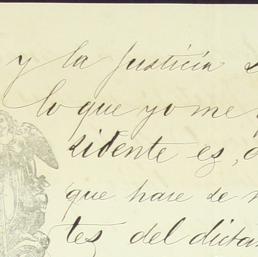 y la Justicia
lo que yo me
sidente es,
que hace de
tes del dicta